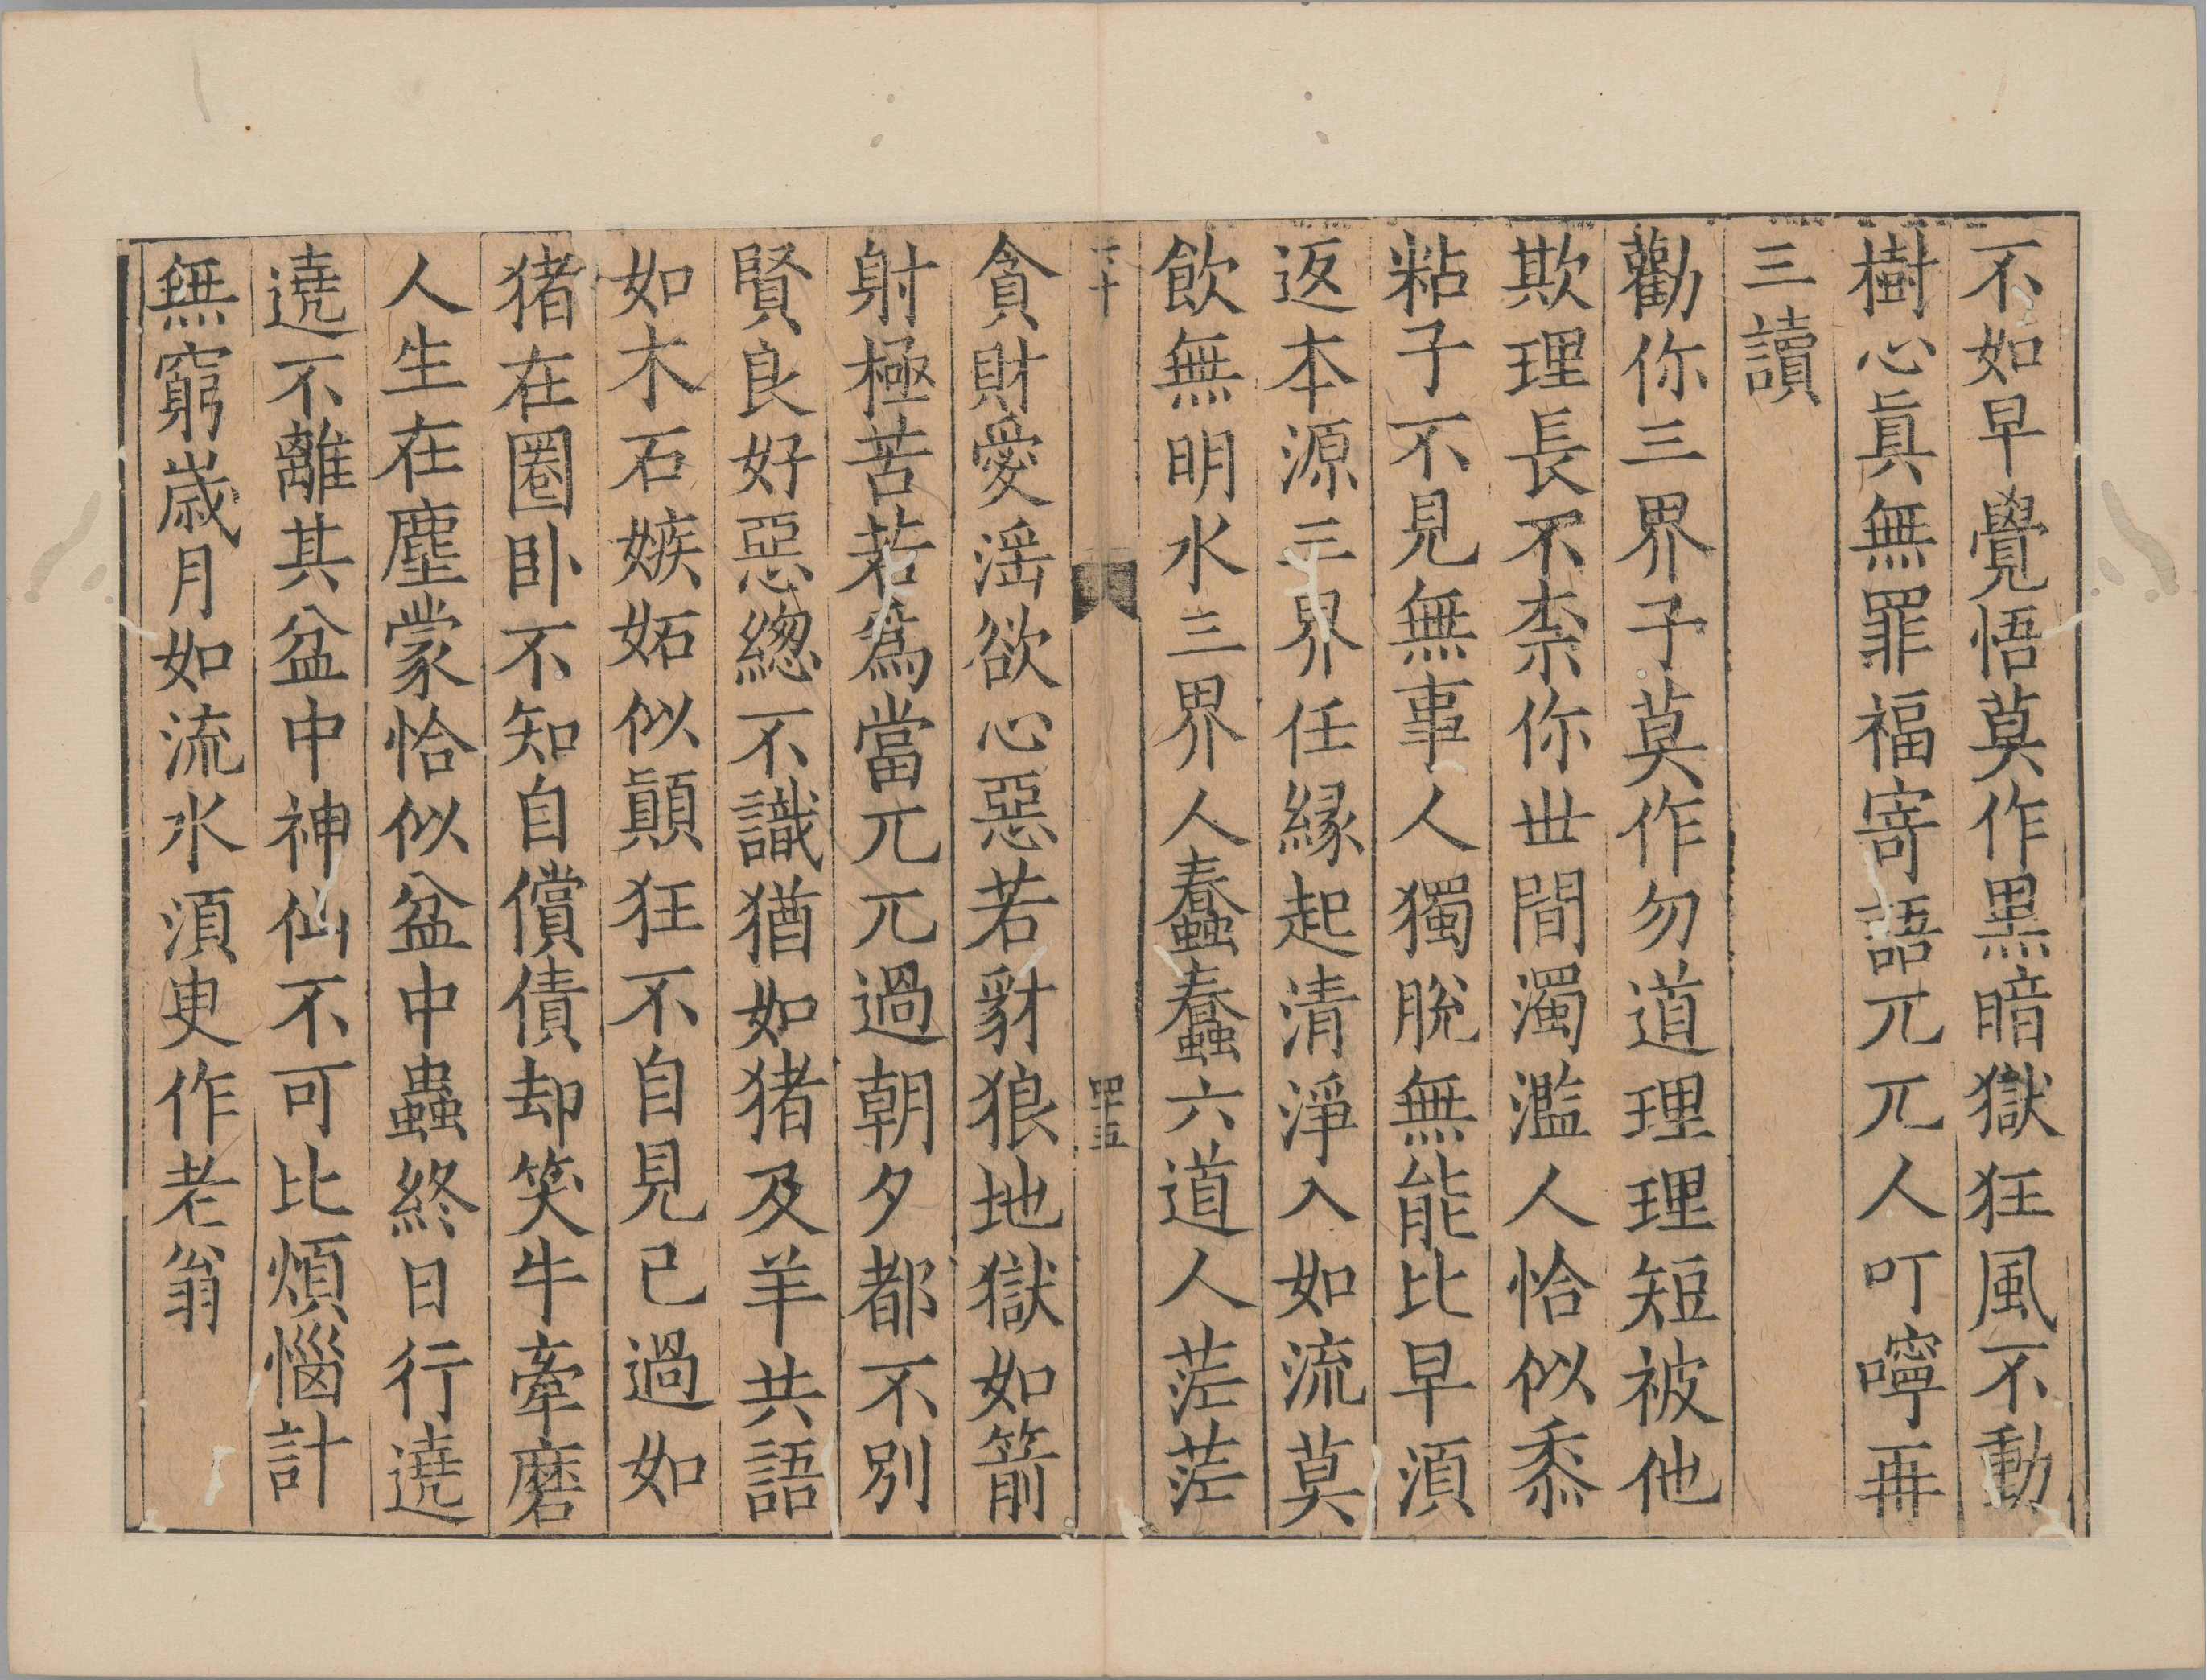 不如早覺悟莫作黑暗獄狂風不動
樹心眞無罪福寄語兀兀人叮嚀再
三讀
勸你三界子莫作勿道理理短被他
欺理長不柰你世間濁濫人恰似黍
粘子不見無事人獨脫無能比早須
返本源三界任緣起清淨入如流莫
飲無明水三界人蠢蠢六道人茫茫
三十
四十五
貪財愛淫欲心惡若豺狼地獄如箭
射極苦若爲當兀兀過朝夕都不別
賢良好惡總不識猶如猪及羊共語
如木石嫉妬似顚狂不自見己過如
猪在圈卧不知自償債却笑牛牽磨
人生在塵蒙恰似盆中蟲終日行遶
遶不離其盆中神仙不可比煩惱計
無窮歲月如流水須臾作老翁